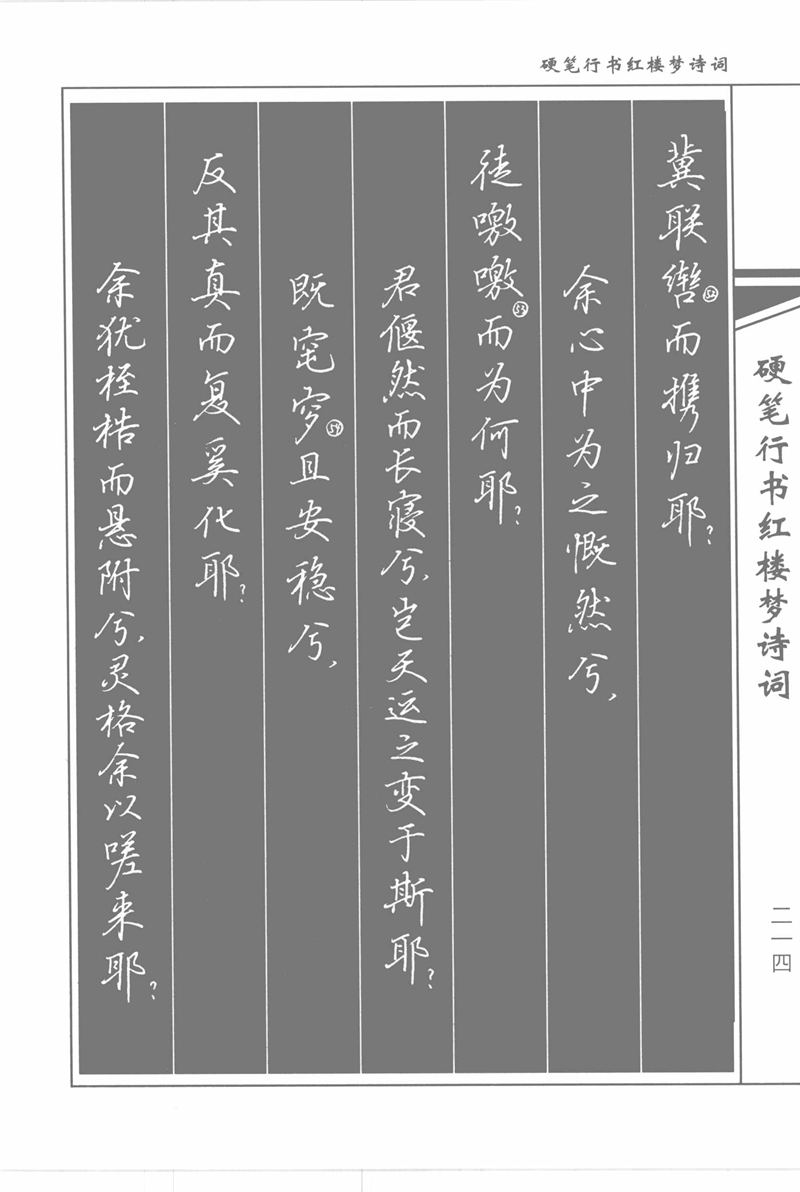 硬笔行书红楼梦诗词
冀联辔(52)而携归耶?
余心中为之慨然兮,
徒噭噭(53)而为何耶?
君偃然而长寝兮,岂天运之变于斯耶?
既窀穸(54)且安稳兮,
反其真而复奚化耶?
余犹桎梏而悬附兮,灵格余以嗟来耶?
硬笔行书红楼梦诗词
二一四